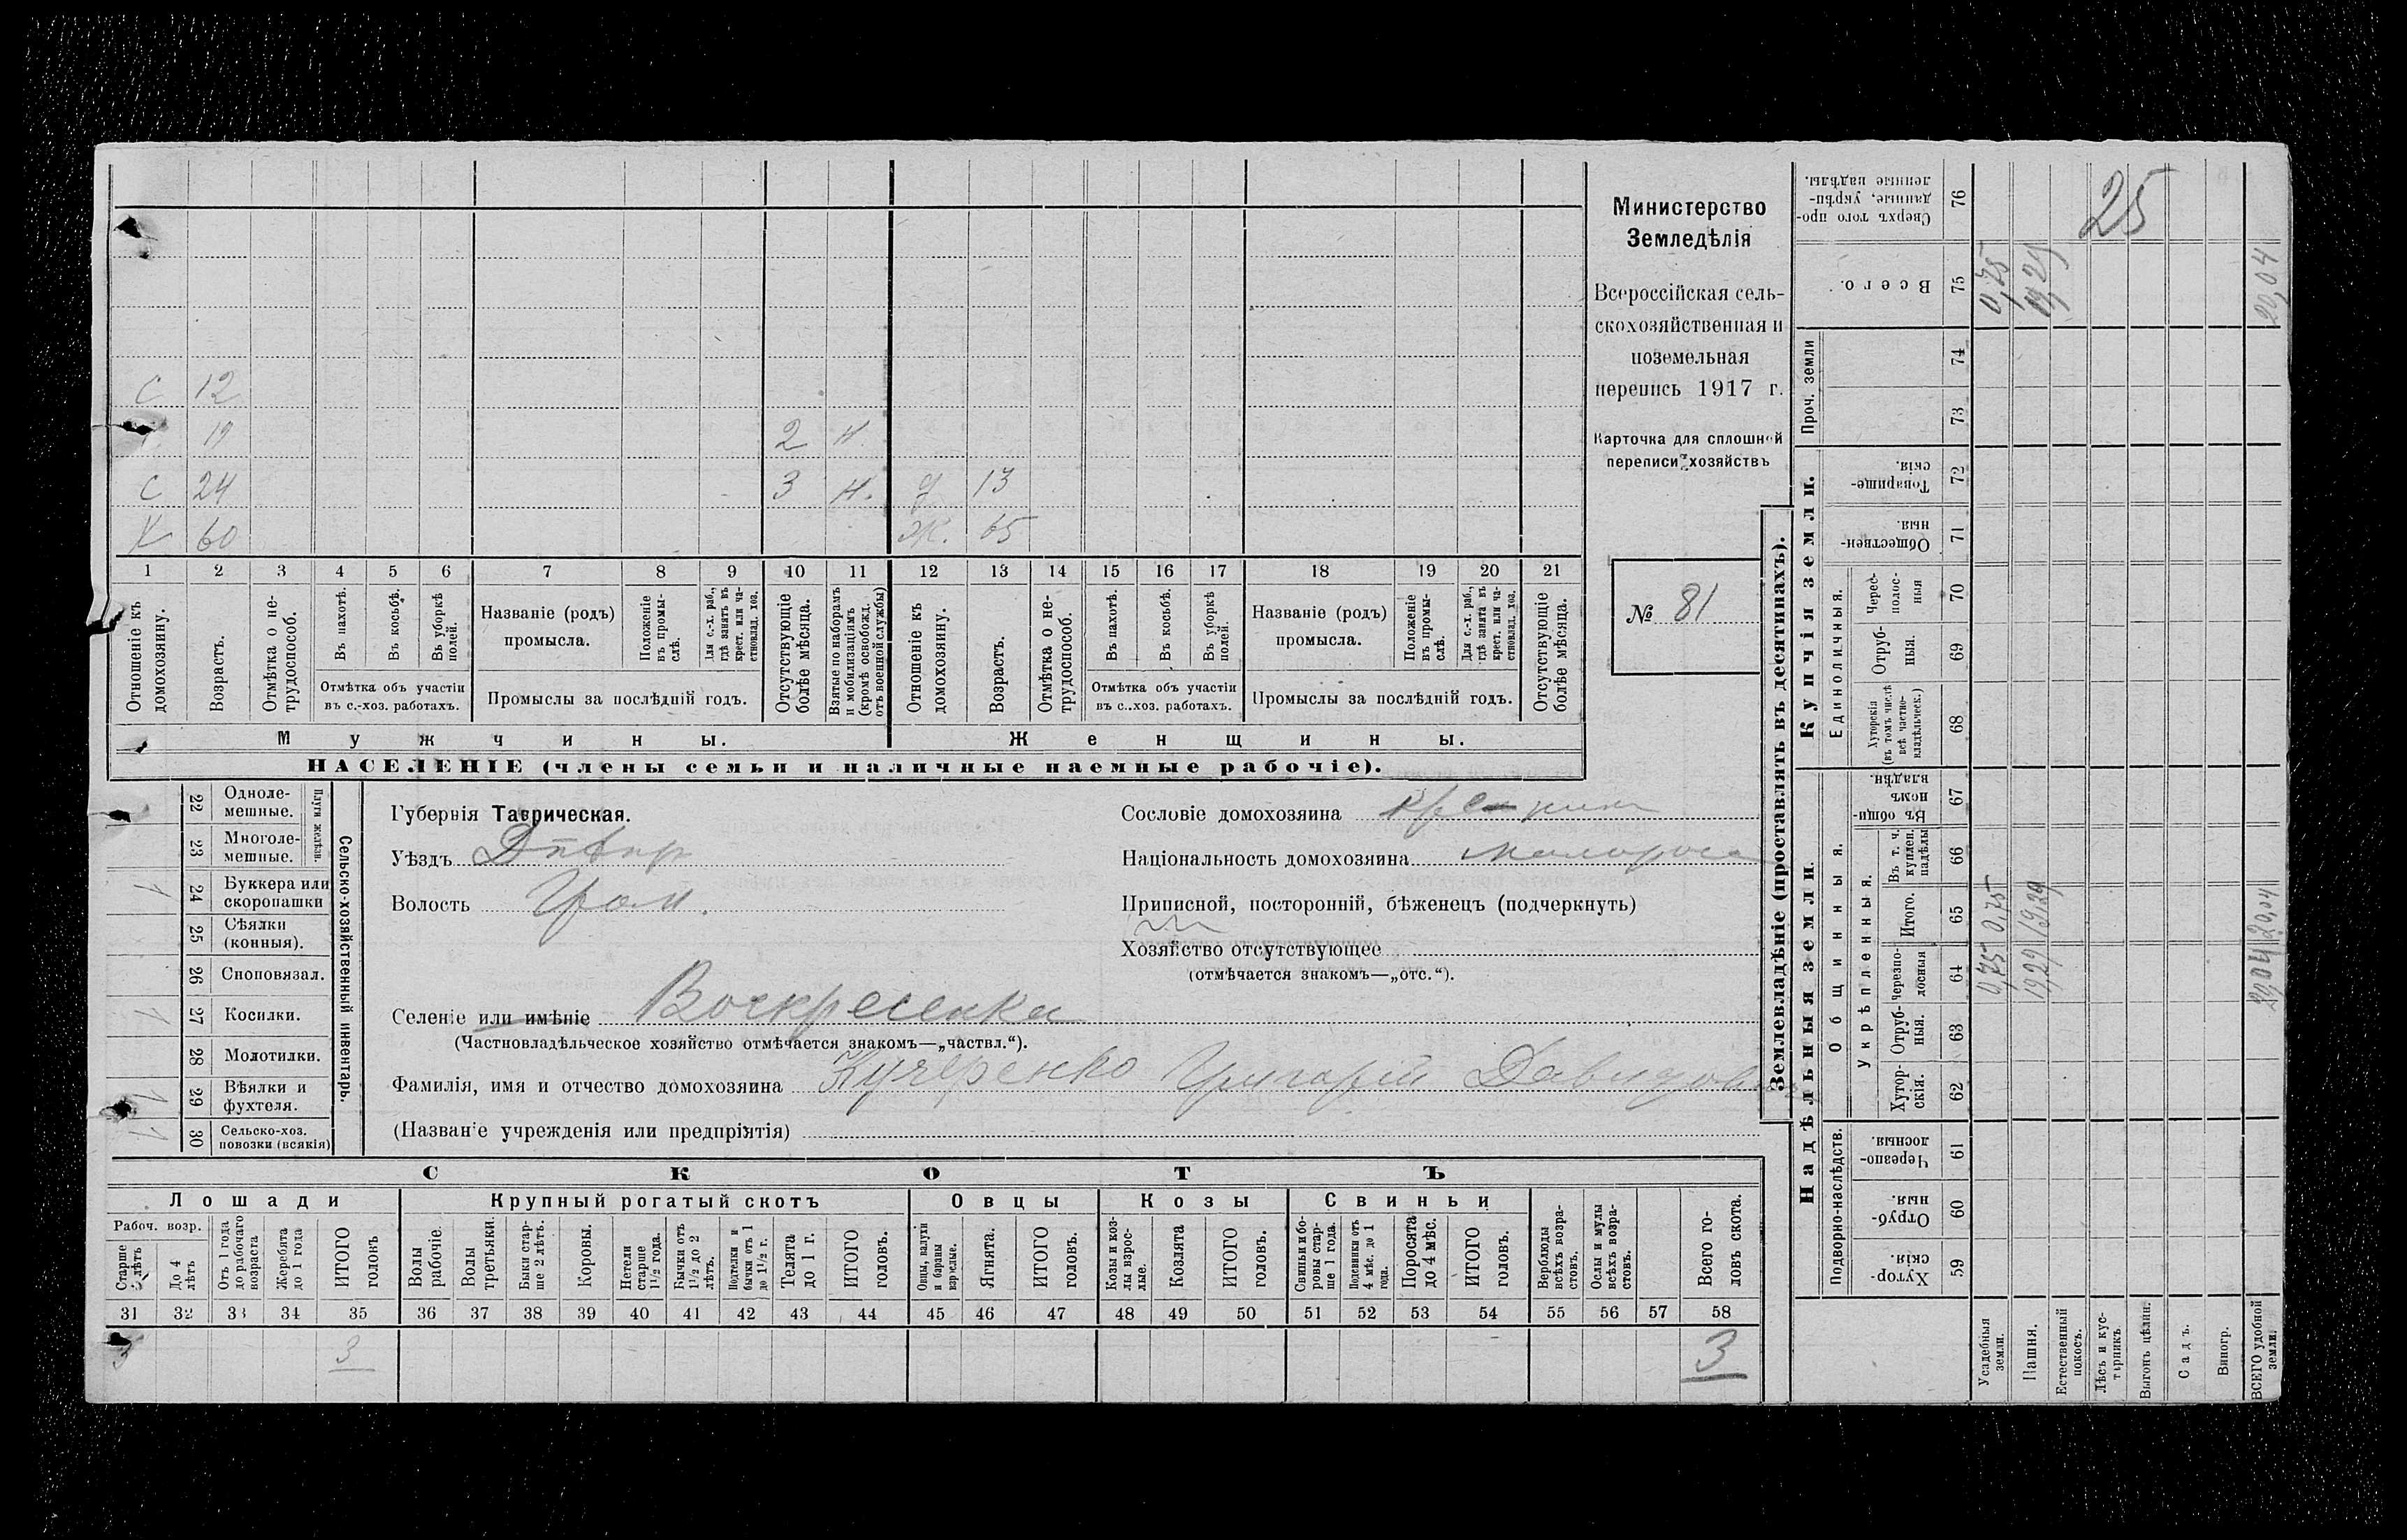 С 12
19 2 н.
С 24 3 н. д 13
Х 60 Ж. 65
1 2 3 4 5 6 7 8 9 10 11 12 13 14 15 16 17 18 19 20 21
Отношеніе къ домохозяину.
Возрастъ.
Отмѣтка о не-трудоспособ.
Въ пахотѣ.
Въ косьбѣ.
Въ уборкѣ полей.
Отмѣтка объ участіи
въ с.-хоз. работахъ.
Названіе (родъ)
промысла.
Положеніе въ промы-слѣ.
Для с.-х. раб., гдѣ занятъ въ крест. или ча-стновлад. хоз.
Промыслы за послѣдній годъ.
Отсутствующіе болѣе мѣсяца.
Взятые по наборамъ и мобилизаціямъ (кромѣ освобожд. отъ военной службы)
Отношеніе къ домохозяину.
Возрастъ.
Отмѣтка о не-трудоспособ.
Въ пахотѣ.
Въ косьбѣ.
Въ уборкѣ полей.
Отмѣтка объ участіи
въ с..хоз. работахъ.
Названіе (родъ)
промысла.
Положеніе въ промы-слѣ.
Для с.-х. раб., гдѣ занята въ крест. или ча-стновлад. хоз.
Промыслы за послѣдній годъ.
Отсутствующіе болѣе мѣсяца.
Мужчины. Женщины.
НАСЕЛЕНІЕ (члены семьи и наличные наемные рабочіе).
Министерство
Земледѣлія
Всероссійская сель-
скохозяйственная и
поземельная
перепись 1917 г.
Карточка для сплошной
переписи хозяйствъ
№ 81
Сельско-хозяйственный инвентарь.
Плуги желѣзн.
22 Одноле-мешные.
23 Многоле-мешные.
24 Буккера или скоропашки 1
25 Сѣялки (конныя).
26 Сноповязал.
27 Косилки. 1
28 Молотилки.
29 Вѣялки и фухтеля.
30 Сельско-хоз. повозки (всякія)
Губернія Таврическая.
Уѣздъ Днѣпр
Волость Гром.
Селеніе или имѣніе Воскресенка
(Частновладѣльческое хозяйство отмѣчается знакомъ—„частвл.“).
Фамилія, имя и отчество домохозяина Кучеренко Григорій Давидов
(Названіе учрежденія или предпріятія)
Сословіе домохозяина кре-нин
Національность домохозяина малоросс
Приписной, посторонній, бѣженецъ (подчеркнуть)
Хозяйство отсутствующее
(отмѣчается знакомъ—„отс.“).
СКОТЪ
Лошади Крупный рогатый скотъ Овцы Козы Свиньи
Рабоч. возр.
Старше лѣтъ
До 4 лѣтъ
Отъ 1 года до рабочаго возраста
Жеребята до 1 года
ИТОГО головъ
Волы рабочіе.
Волы третьяки.
Быки стар-ше 2 лѣтъ.
Коровы.
Нетели старше 1½ года.
Бычки отъ 1½ до 2 лѣтъ.
Подтелки и бычки отъ 1 до 1½ г.
Телята до 1 г.
ИТОГО головъ.
Овцы, валухи и бараны взрослые.
Ягнята.
ИТОГО головъ.
Козы и коз-лы взрос-лые.
Козлята
ИТОГО головъ.
Свиньи и бо-ровы стар-ше 1 года.
Подсвинки отъ 4 мѣс. до 1 года.
Поросята до 4 мѣс.
ИТОГО головъ.
Верблюды всѣхъ возра-стовъ.
Ослы и мулы всѣхъ возра-стовъ.
Всего го-ловъ скота.
31 32 33 34 35 36 37 38 39 40 41 42 43 44 45 46 47 48 49 50 51 52 53 54 55 56 57 58
3 3 3
Землевладѣніе (проставлять въ десятинахъ).
Надѣльныя земли.
Купчія земли.
Подворно-наслѣдств.
Общинныя.
Укрѣпленныя.
Единоличныя.
Проч. земли
59 Хутор-скія.
60 Отруб-ныя.
61 Черезпо-лосныя.
62 Хутор-скія.
63 Отруб-ныя.
64 Черезпо-лосныя
65 Итого.
66 Въ т. ч. куплен. надѣлы
67 Въ общи-номъ владѣн.
68 Хуторскія (въ томъ числѣ всѣ частно-владѣльческ.)
69 Отруб-ныя.
70 Черес-полос-ныя
71 Обществен-ныя.
72 Товарище-скія.
73
74
75 Всего.
76 Сверхъ того про-данные, укрѣп-ленные надѣлы.
Усадебныя земли. 0,75 0,75 0,75
Пашня. 19,29 19,29 19,29
Естественный покосъ.
Лѣсъ и кус-тарникъ.
Выгонъ цѣлин.
Садъ.
Виногр.
ВСЕГО удобной земли. 20,04 20,04 20,04
25